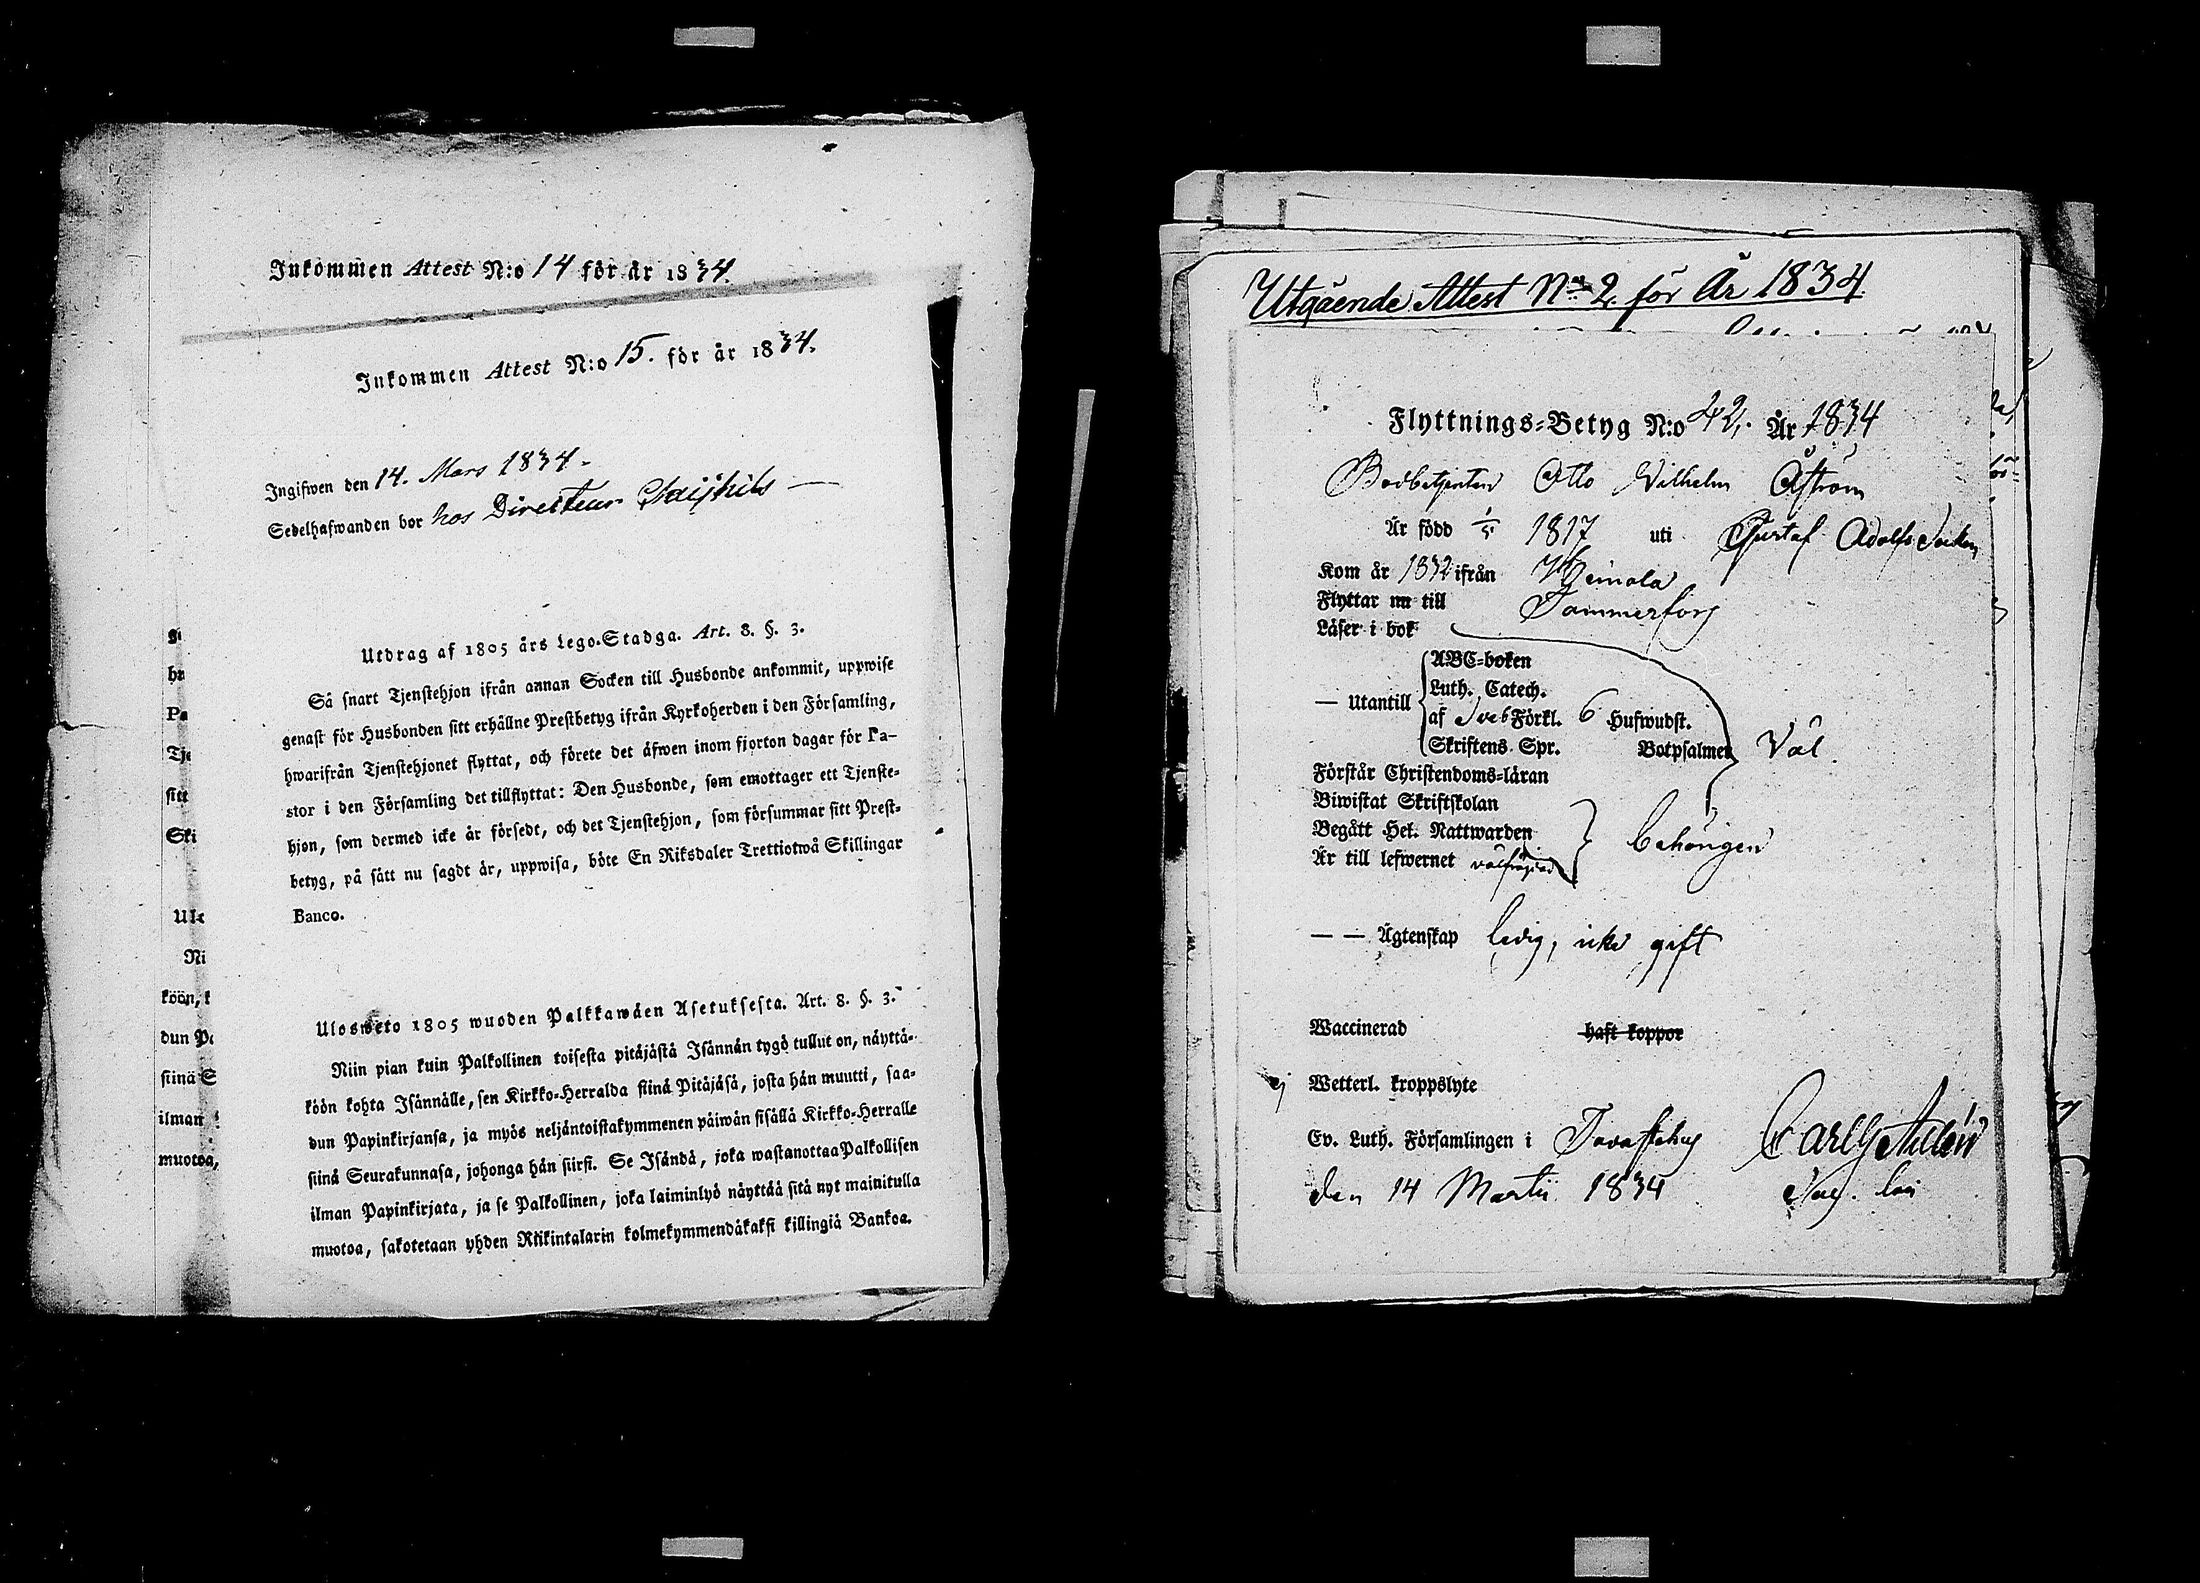 Inkommen Attest N:o 14 för år 1834.
Inkommen Attest N:o 15. för år 1834.
Ingifwen den 14. Mars 1834.
Sedelhafwanden bor hos Directeur
Utdrag af 1805 års Lego-Stadga. Art. 8. §. 3.
Så snart Tjenstehjon ifrån annan Socken till Husbonde ankommit, uppwise
genast för Husbonden sitt erhållne Prestbetyg ifrån Kyrkoherden i den Församling,
hwarifrån Tjenstehjonet flyttat, och förete det äfwen inom fjorton dagar för Pa-
stor i den Församling det tillflyttat: Den Husbonde, som emottager ett Tjenste-
hjon, som dermed icke är försedt, och det Tjenstehjon, som försummar sitt Prest-
betyg, på sått nu sagdt är, uppwisa, böte En Riksdaler Trettiotwå Skillingar
Banco.
Ulosweto 1805 wuoden Palkkawäen Asetuksesta. Art. 8. §. 3.
Niin pian kuin Palkollinen toisesta pitäjästä Isännän tygö tullut on, näyttä-
köön kohta Isännälle, sen Kirkko-Herralda siinä Pitäjäsä, josta hän muutti, saa-
dun Papinkirjansa, ja myös neljäntoistakymmenen päiwän sisällä Kirkko-Herralle
siinä Seurakunnasa, johonga hän siirsi. Se Isändä, joka wastanottaa Palkollisen
ilman Papinkirjata, ja se Palkollinen, joka laiminlyö näyttää sitä nyt mainitulla
muotoa, sakotetaan yhden Riikintalarin kolmekymmendäkaksi killingiä Bankoa.
Utgående Attest No 2. för År 1834
Flyttnings-Betyg N:o 42. År 1834
Bodbetjenten Otto Wilhelm Åström
Är född 1/5. 1817 uti Gustaf Adolfs Socken
Kom år 1832 ifrån Heinola
Flyttar nu till Tammerfors
Läser i bok
ABC-boken
Luth. Catech.
— Utantill af Sveb Förkl. 6 Hufwudst.
Skriftens Spr. Botpsalmer Väl
Förstår Christendoms-läran
Biwistat Skriftskolan
Begått Hel. Nattwarden behörigen
Är till lefwernet välfrägdad
— — Ägtenskap ledig, icke gift
Waccinerad haft koppor
ej Wetterl. kroppslyte
Ev. Luth. Församlingen i Tavastehus Carl
den 14 Martii 1834